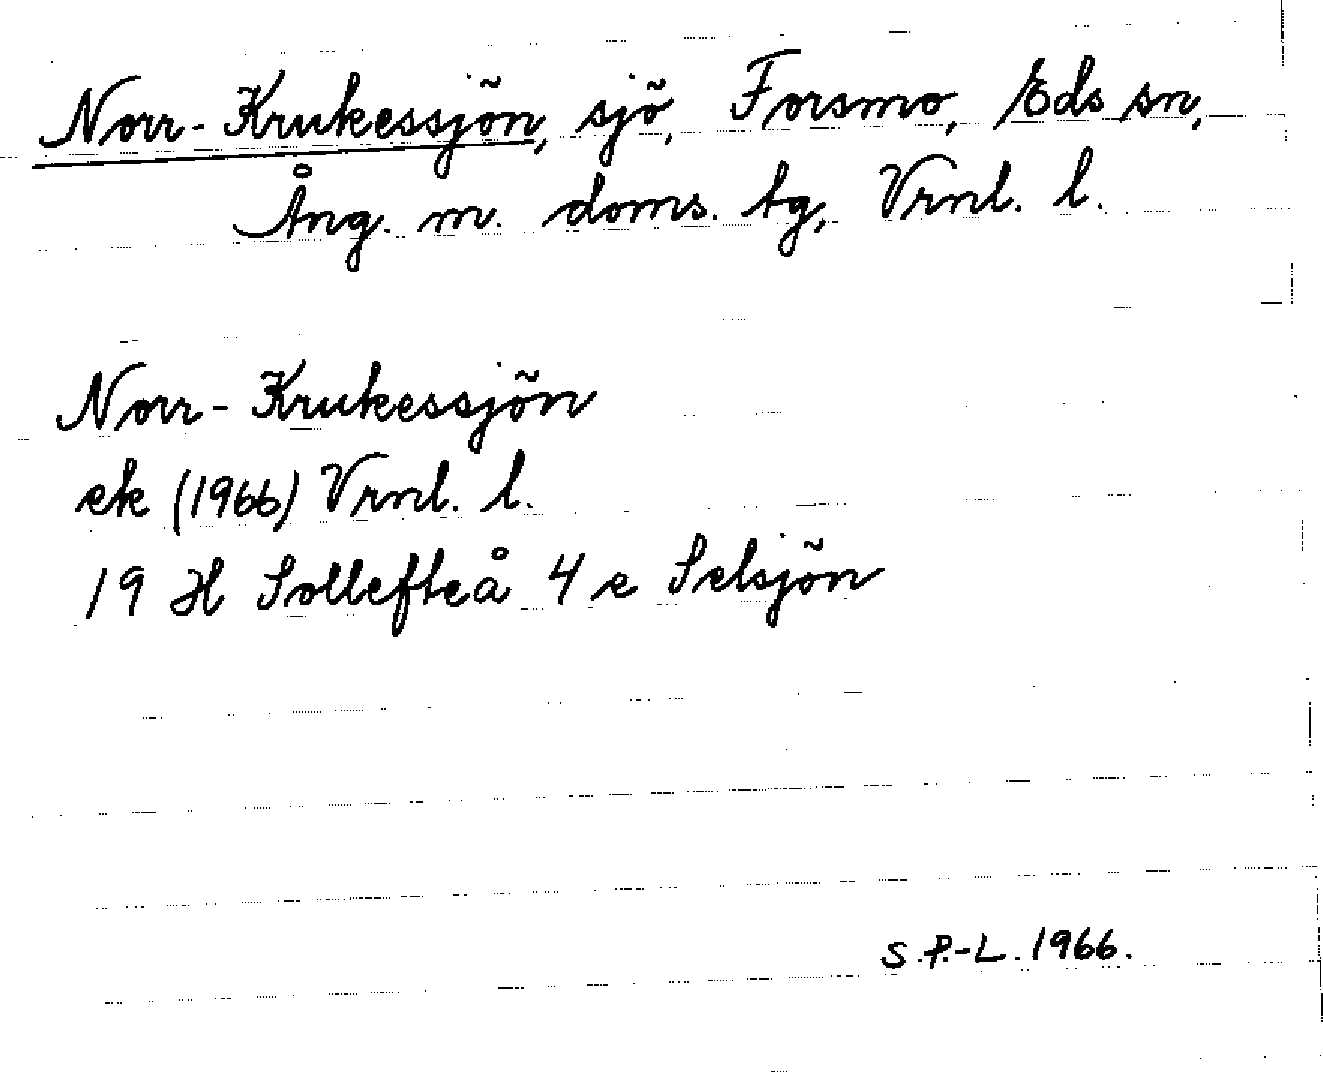 Norr-Krukessjön, sjö, Forsmo, Eds sn,
Ång. m. doms. tg, Vrnl. l.
Norr-Krukessjön
ek (1966) Vrnl. l.
19 H Sollefteå 4 e Selsjön
S.P.-L. 1966.